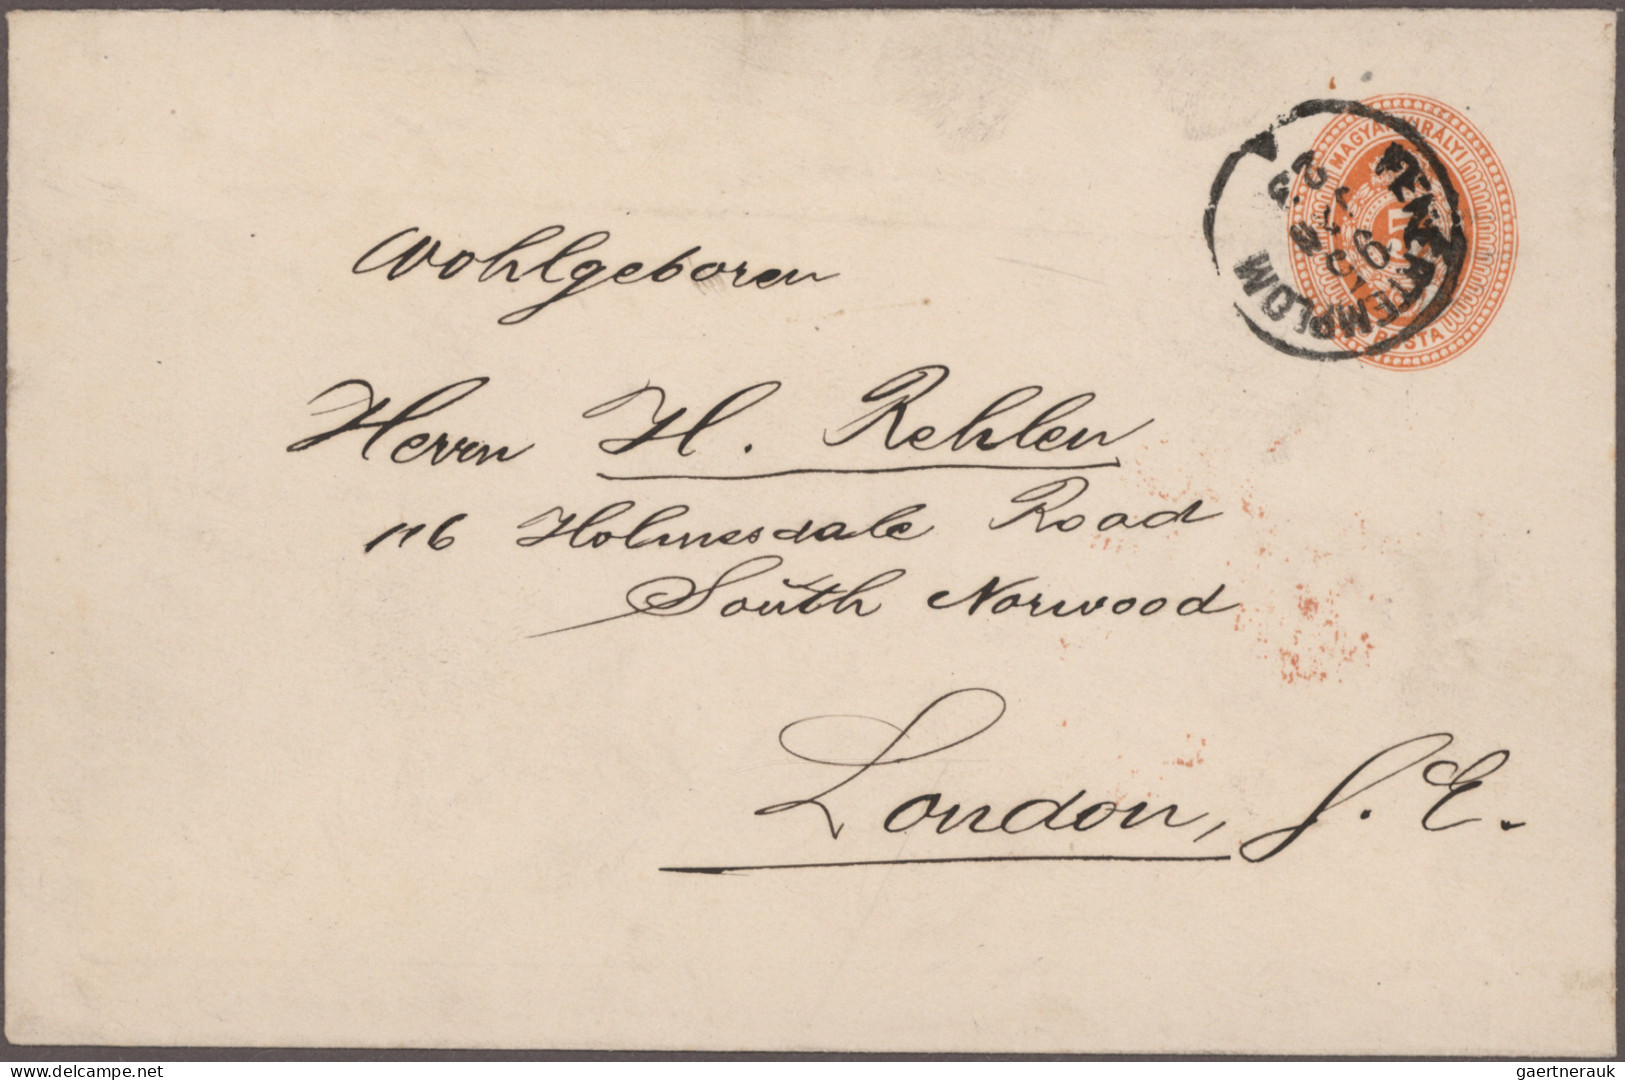 MAGYAR KIRÁLYI
5
POSTA
FEHÉRTEMPLOM
Wohlgeboren
Herrn H. Rehlen
116 Holmesdale Road
South Norwood
London, S.E.
www.delcampe.net
gaertnerauk